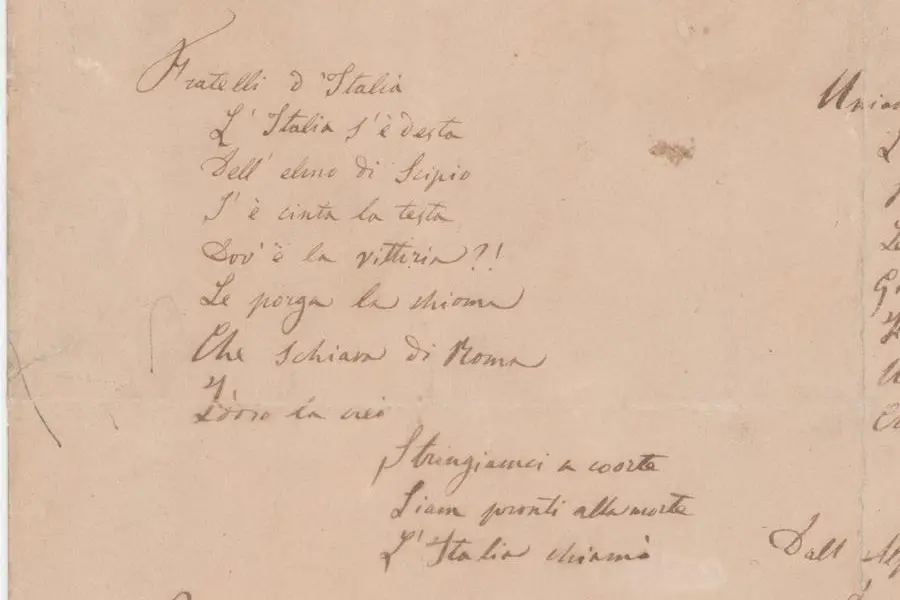 Fratelli d'Italia
L'Italia s'è desta
Dell' elmo di Scipio
S'è cinta la testa
Dov'è la vittoria?!
Le porga la chioma
Che schiava di Roma
Iddio la creò
Stringiamci a coorte
Siam pronti alla morte
L'Italia chiamò
Dall